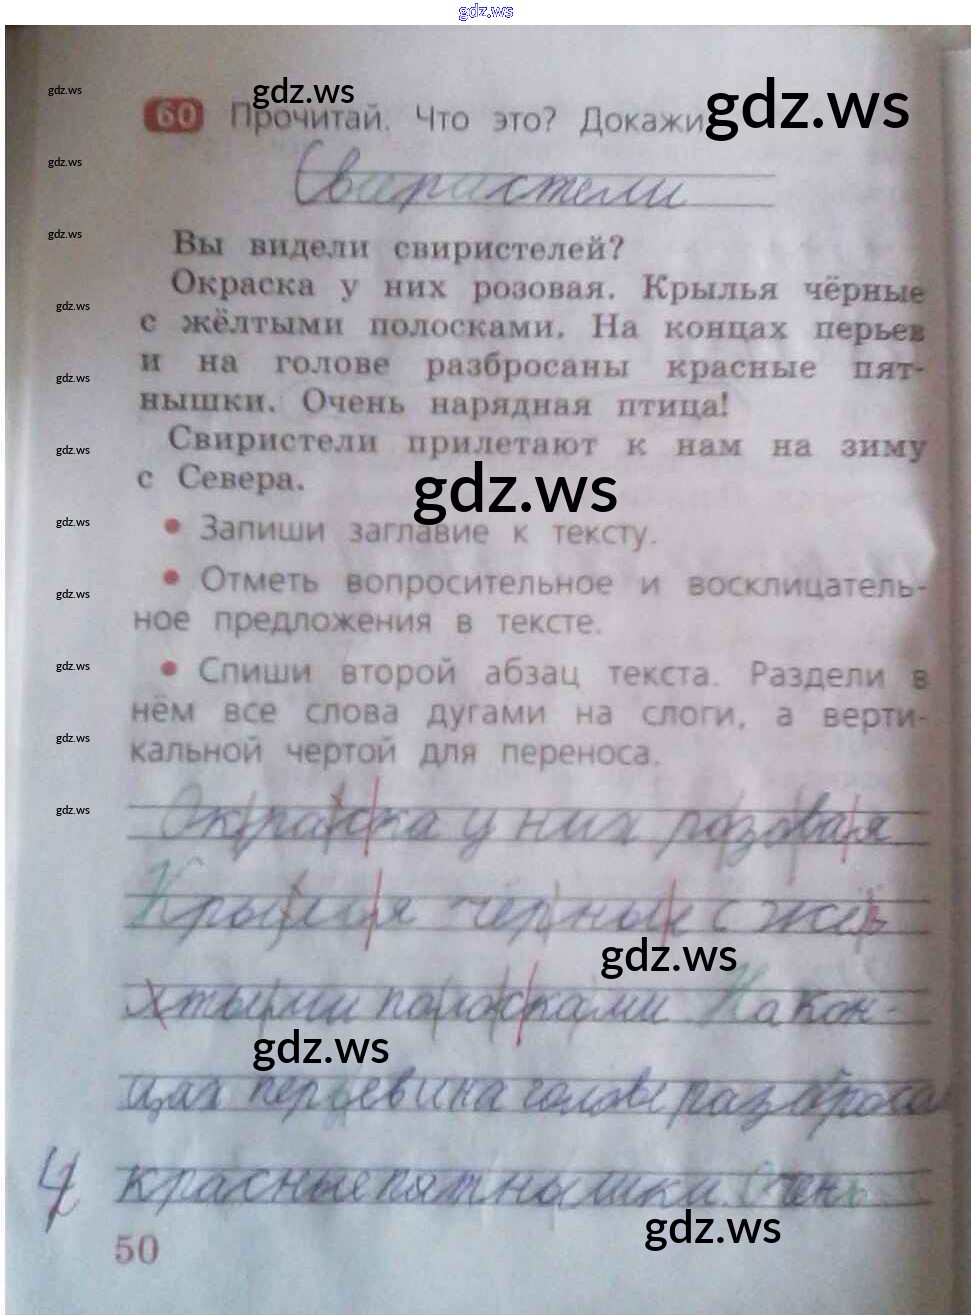 gdz.ws
gdz.ws gdz.ws gdz.ws
60 Прочитай. Что это? Докажи
gdz.ws
Сваристели
gdz.ws
Вы видели свиристелей?
Окраска у них розовая. Крылья чёрные
gdz.ws
с жёлтыми полосками. На концах перьев
и на голове разбросаны красные пят-
gdz.ws
нышки. Очень нарядная птица!
Свиристели прилетают к нам на зиму
gdz.ws
с Севера.
gdz.ws
• Запиши заглавие к тексту.
gdz.ws
• Отметь вопросительное и восклицатель-
gdz.ws
ное предложения в тексте.
• Спиши второй абзац текста. Раздели в
gdz.ws
нём все слова дугами на слоги, а верти-
gdz.ws
кальной чертой для переноса.
gdz.ws
Окраска у них розовая
Крылья чёрные с
gdz.ws
полосками На кон-
gdz.ws
цах перьев и на голове
4 красные пятнышки. Очень
gdz.ws
50